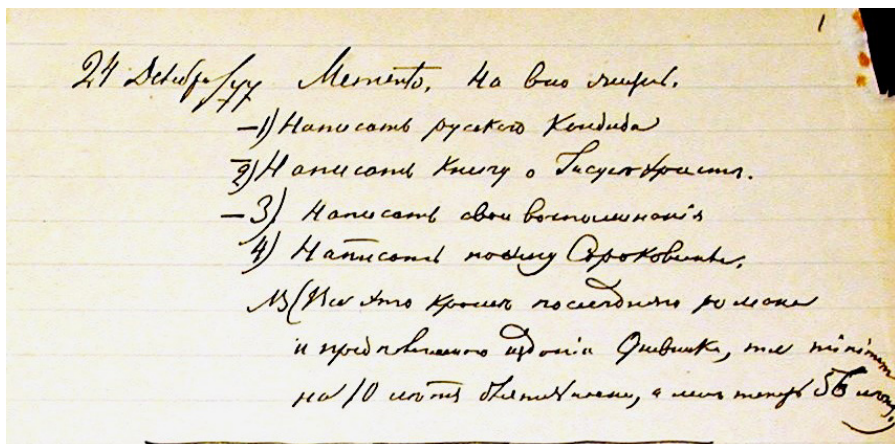 1
24 Декабря/77 Memento. На всю жизнь.
1) Написать русского Кандида
2) Написать книгу о Іисусѣ Христѣ.
3) Написать свои воспоминанія
4) Написать поэму Сороковины.
NB (Все это кромѣ послѣдняго романа
и предполагаемаго изданія Дневника, т. е. minimum
на 10 лѣтъ дѣятельности, а мнѣ теперь 56 лѣтъ.)